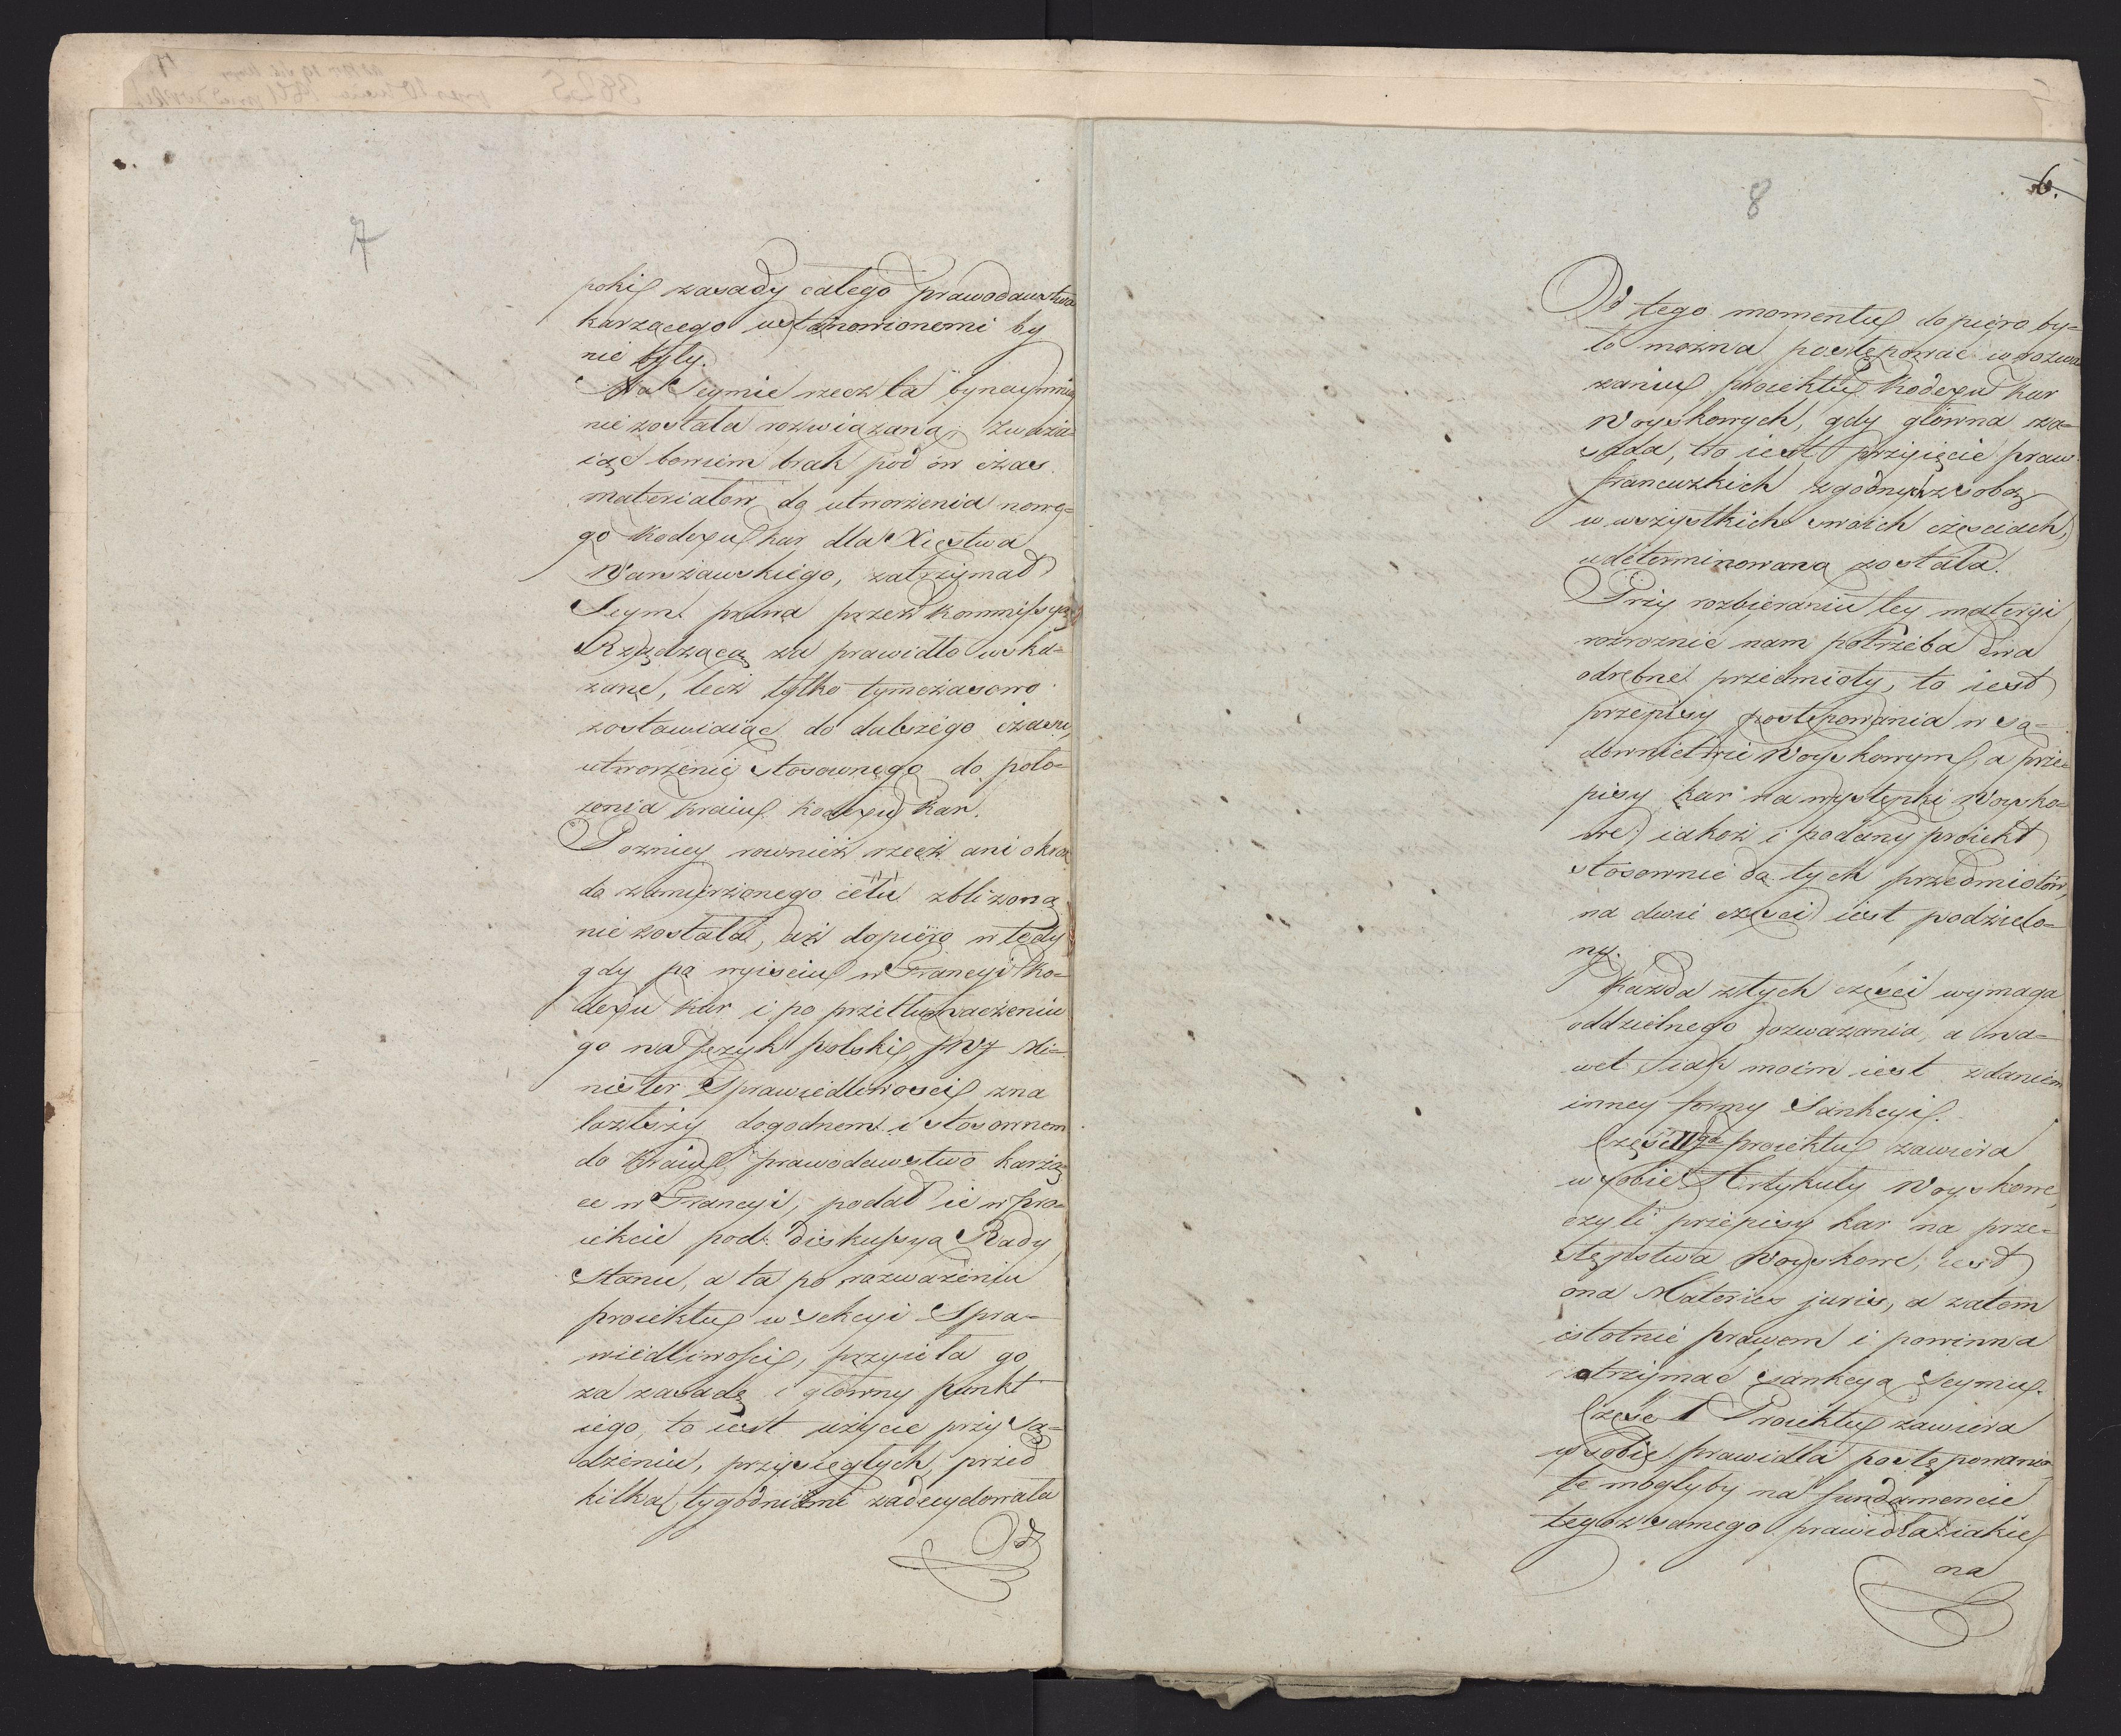 7
poki zasady całego prawodawstwa
karzącego ustanowionemi by
nie były.
Na Seymie rzecz ta bynaymniey
nie została rozwiązaną; zważa-
iąc bowiem brak pod ów czas
materiałów do utworzenia nowe-
go Kodexu kar dla Xięstwa
Warszawskiego, zatrzymał
Seym prawa przez Kommissyą
Rządzącą za prawidło wska-
zane, lecz tylko tymczasowo
zostawiaiąc do dalszego czasu,
utworzenie stosownego do poło-
żenia kraiu Kodexu Kar.
Pozniey rownież rzecz ani o krok
do zamierzonego celu zbliżoną
nie została, aż dopiéro w tedy
gdy po wyiściu w Francyi Ko-
dexu Kar i po przetłumaczeniu
go na Język polski, JW Mi-
nister Sprawiedliwości zna
lazłszy dogodnem i stosownem
do Kraiu prawodawstwo karzą-
ce w Francyi, podał ie w pro-
iekcie pod diskussyą Rady
Stanu, a ta po rozważeniu
proiektu w sekcyi Spra-
wiedliwości, przyięła go
za zasadę i główny punkt
iego, to iest użycie przy są-
dzeniu, przysięgłych, przed
kilka tygodniami zadecydowała
Od
8
6.
Od tego momentu dopiero by-
ło można postępować w rozwa
żaniu proiektu Kodexu kar
Woyskowych, gdy główna za-
sada, to iest przyięcie praw
francuzkich zgodnych z sobą
w wszystkich swoich częściach,
udeterminowaną została.
Przy rozbieraniu tey materyi
rozroznić nam potrzeba dwa
odrębne przedmioty, to iest
przepisy postępowania w są-
downictwie Woyskowym, a prze-
pisy kar na występki Woysko-
we; iakoż i podany proiekt
stosownie do tych przedmiotów,
na dwie części iest podzielo-
ny.
Każda z tych części wymaga
oddzielnego rozważania, a na-
wet iak moim iest zdaniem
inney formy Sankcyi.
Część IIga proiektu zawiera
w sobie Artykuły Woyskowe,
czyli przepisy kar na prze-
stępstwa Woyskowe, iest
ona Materies juris, a zatem
istotnie prawem i powinna
otrzymać sankcyą Seymu.
Część I Proiektu zawiera
w sobie prawidła postępowania
te mogłyby na fundamencie
tegoż samego prawidła iakie
na